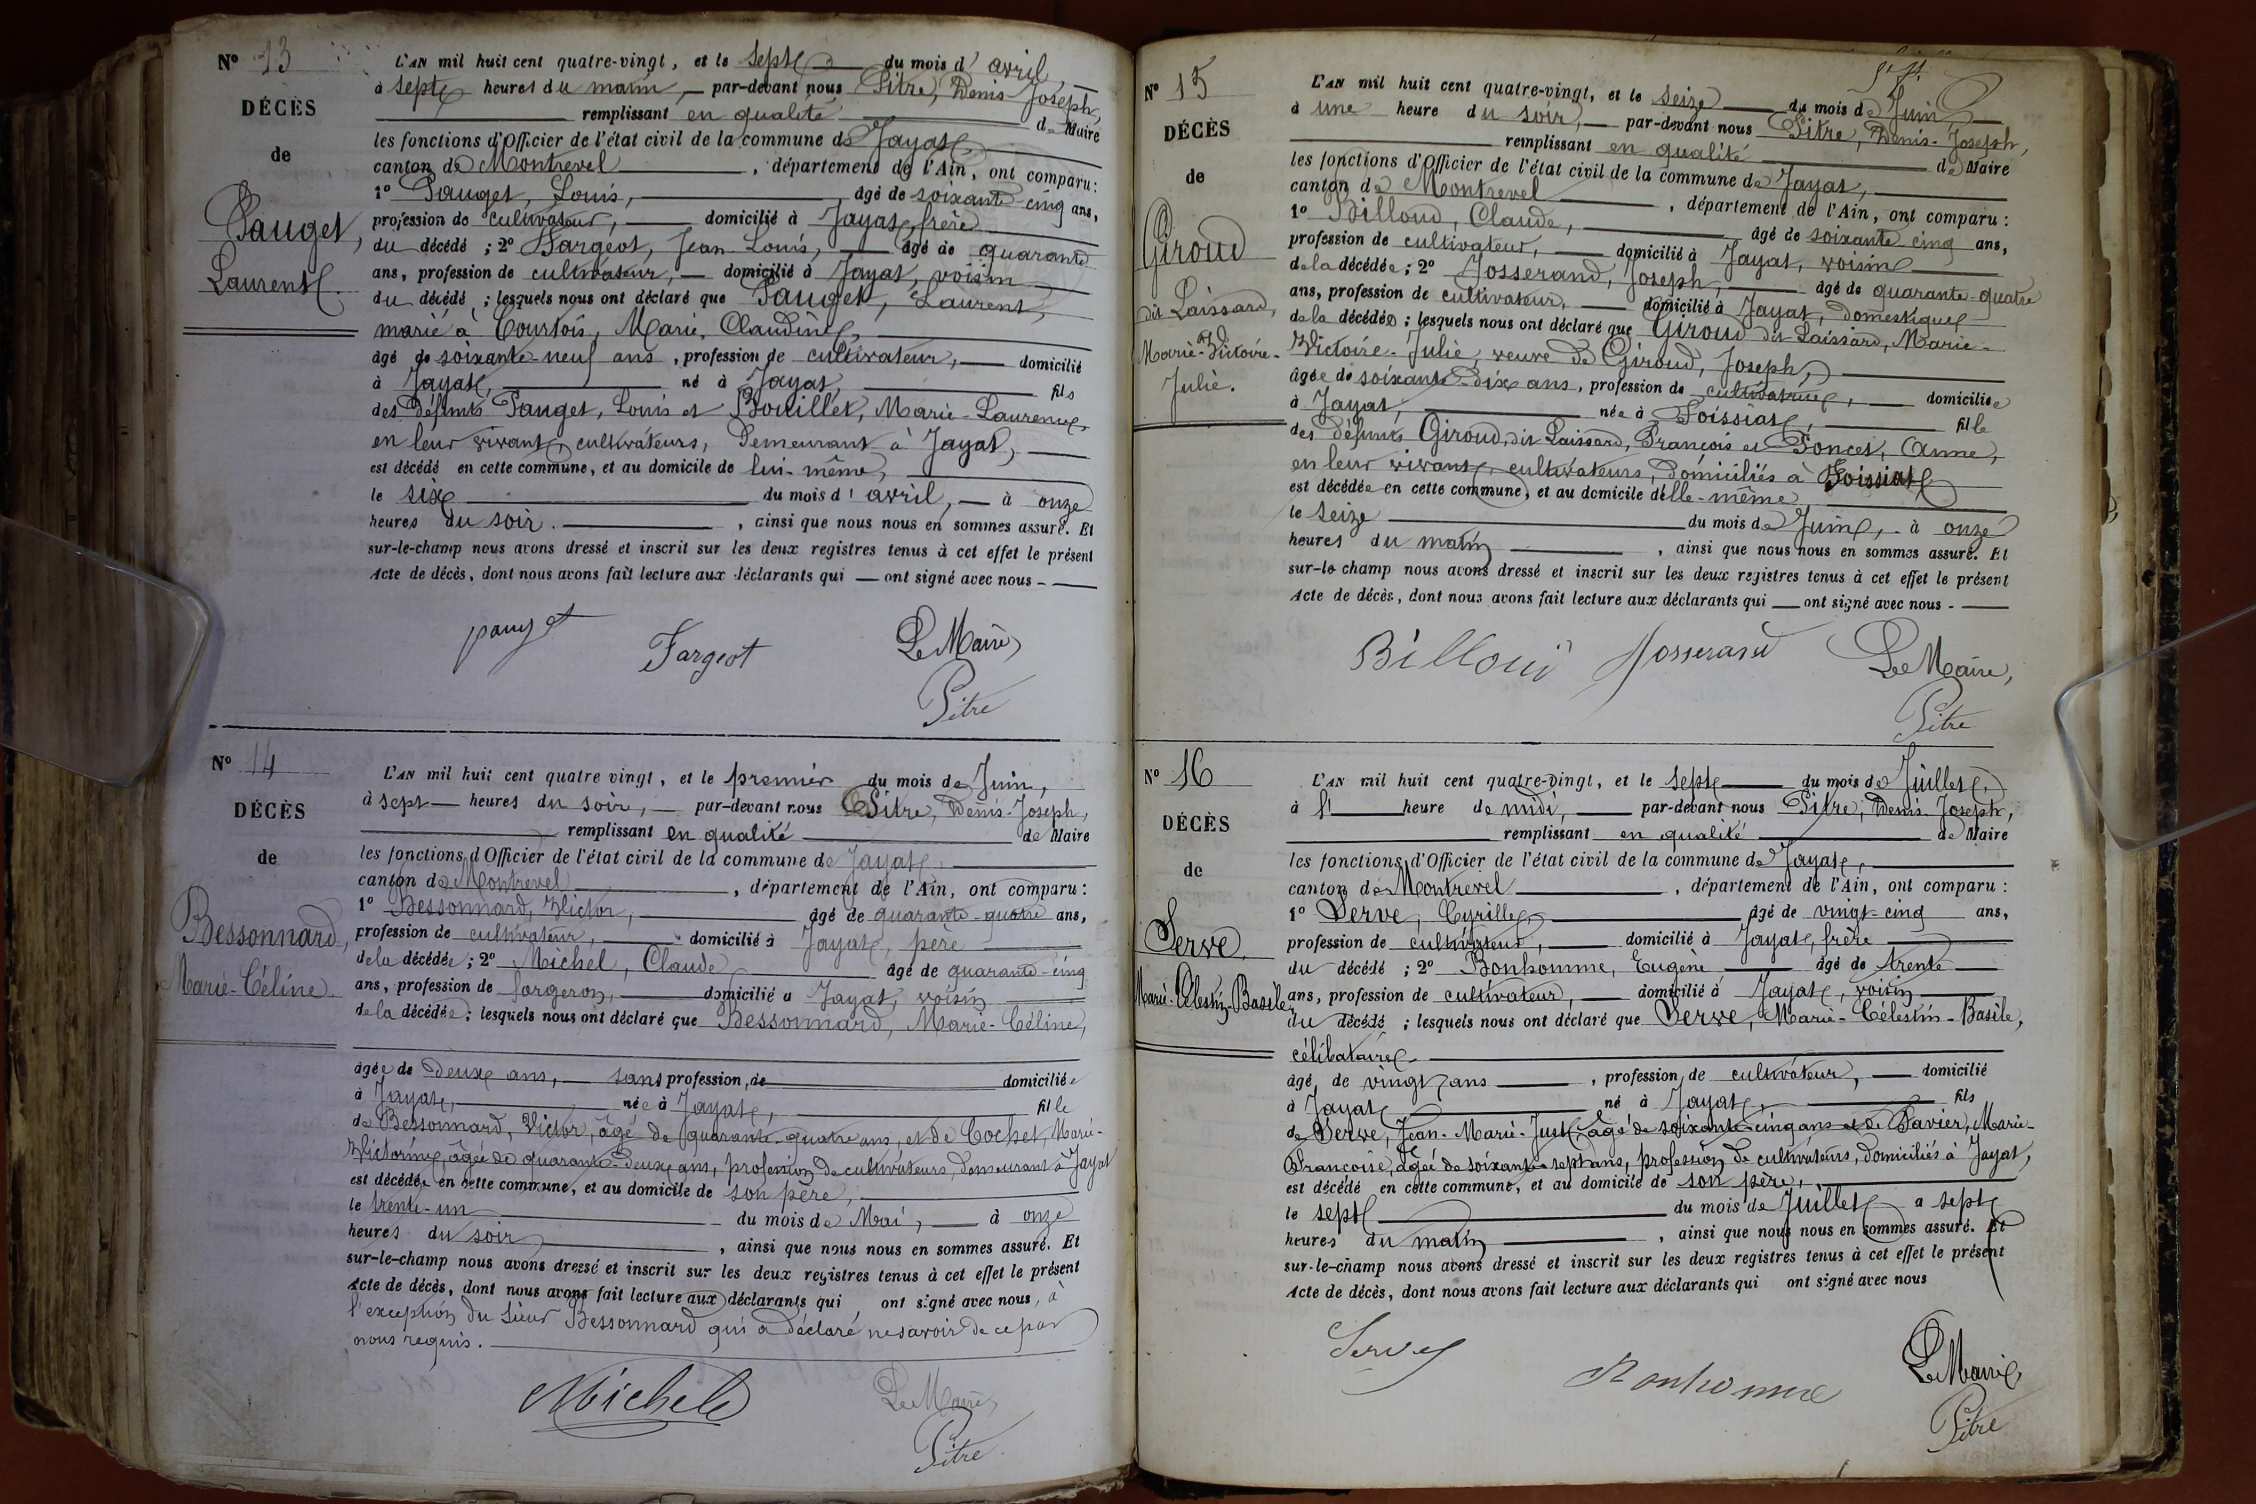 N° 13
DÉCÈS
de
Pauget,
Laurent.
L'AN mil huit cent quatre-vingt, et le sept du mois d'avril,
à sept heures du matin, par-devant nous Pitre, Denis-Joseph,
remplissant en qualité de Maire
les fonctions d'Officier de l'état civil de la commune de Jayat,
canton de Montrevel, département de l'Ain, ont comparu :
1° Pauget, Louis, âgé de soixante-cinq ans,
profession de cultivateur, domicilié à Jayat, frère
du décédé ; 2° Fargeot, Jean Louis, âgé de quarante
ans, profession de cultivateur, domicilié à Jayat, voisin
du décédé ; lesquels nous ont déclaré que Pauget, Laurent,
marié à Courtois, Marie, Claudine,
âgé de soixante-neuf ans, profession de cultivateur, domicilié
à Jayat, né à Jayat, fils
des défunts Pauget, Louis et Bouillet, Marie-Laurence,
en leur vivant, cultivateurs, demeurant à Jayat,
est décédé en cette commune, et au domicile de lui-même,
le six du mois d'avril, à onze
heures du soir, ainsi que nous nous en sommes assuré. Et
sur-le-champ nous avons dressé et inscrit sur les deux registres tenus à cet effet le présent
Acte de décès, dont nous avons fait lecture aux déclarants qui ont signé avec nous
pauget
Fargeot
Le Maire,
Pitre
N° 14
DÉCÈS
de
Bessonnard,
Marie-Céline.
L'AN mil huit cent quatre vingt, et le premier du mois de Juin,
à sept heures du soir, par-devant nous Pitre, Denis-Joseph,
remplissant en qualité de Maire
les fonctions d'Officier de l'état civil de la commune de Jayat,
canton de Montrevel, département de l'Ain, ont comparu :
1° Bessonnard, Victor, âgé de quarante-quatre ans,
profession de cultivateur, domicilié à Jayat, père
de la décédée ; 2° Michel, Claude âgé de quarante-cinq
ans, profession de forgeron, domicilié à Jayat, voisin
de la décédée ; lesquels nous ont déclaré que Bessonnard, Marie-Céline,
âgée de deux ans, sans profession, de domiciliée
à Jayat, née à Jayat, fille
de Bessonnard, Victor, âgé de quarante-quatre ans, et de Cochet, Marie-
Victorine, âgée de quarante-deux ans, profession de cultivateurs, demeurant à Jayat
est décédée en cette commune, et au domicile de son père,
le trente-un du mois de Mai, à onze
heures du soir, ainsi que nous nous en sommes assuré. Et
sur-le-champ nous avons dressé et inscrit sur les deux registres tenus à cet effet le présent
Acte de décès, dont nous avons fait lecture aux déclarants qui ont signé avec nous, à
l'exception du sieur Bessonnard qui a déclaré ne savoir de ce par
nous requis.
Michel
Le Maire,
Pitre
N° 15
DÉCÈS
de
Giroud
dit Laissard,
Marie-Victoire-
Julie.
L'AN mil huit cent quatre-vingt, et le seize du mois de Juin,
à une heure du soir, par-devant nous Pitre, Denis-Joseph,
remplissant en qualité de Maire
les fonctions d'Officier de l'état civil de la commune de Jayat,
canton de Montrevel, département de l'Ain, ont comparu :
1° Billoud, Claude, âgé de soixante-cinq ans,
profession de cultivateur, domicilié à Jayat, voisin
de la décédée ; 2° Josserand, Joseph, âgé de quarante-quatre
ans, profession de cultivateur, domicilié à Jayat, domestique
de la décédée ; lesquels nous ont déclaré que Giroud dit Laissard, Marie-
Victoire-Julie, veuve de Giroud, Joseph,
âgée de soixante-dix ans, profession de cultivatrice, domiciliée
à Jayat, née à Foissiat, fille
des défunts Giroud, dit Laissard, François et Poncet, Anne,
en leur vivant, cultivateurs, domiciliés à Foissiat
est décédée en cette commune, et au domicile d'elle-même
le seize du mois de Juin, à onze
heures du matin, ainsi que nous nous en sommes assuré. Et
sur-le champ nous avons dressé et inscrit sur les deux registres tenus à cet effet le présent
Acte de décès, dont nous avons fait lecture aux déclarants qui ont signé avec nous
Billoud
Josserand
Le Maire,
Pitre
N° 16
DÉCÈS
de
Serve,
Marie-Célestin-Basile
L'AN mil huit cent quatre-vingt, et le sept du mois de Juillet,
à l' heure de midi, par-devant nous Pitre, Denis-Joseph,
remplissant en qualité de Maire
les fonctions d'Officier de l'état civil de la commune de Jayat,
canton de Montrevel, département de l'Ain, ont comparu :
1° Serve, Cyrille, âgé de vingt-cinq ans,
profession de cultivateur, domicilié à Jayat, frère
du décédé ; 2° Bonhomme, Eugène âgé de trente
ans, profession de cultivateur, domicilié à Jayat, voisin
du décédé ; lesquels nous ont déclaré que Serve, Marie-Célestin-Basile,
célibataire
âgé de vingt ans, profession de cultivateur, domicilié
à Jayat né à Jayat, fils
de Serve, Jean-Marie-Just, âgé de soixante-cinq ans et de Favier, Marie-
Françoise, âgée de soixante-sept ans, profession de cultivateurs, domiciliés à Jayat,
est décédé en cette commune, et au domicile de son père,
le sept du mois de Juillet à sept
heures du matin, ainsi que nous nous en sommes assuré. Et
sur-le-champ nous avons dressé et inscrit sur les deux registres tenus à cet effet le présent
Acte de décès, dont nous avons fait lecture aux déclarants qui ont signé avec nous
Serve
Bonhomme
Le Maire,
Pitre